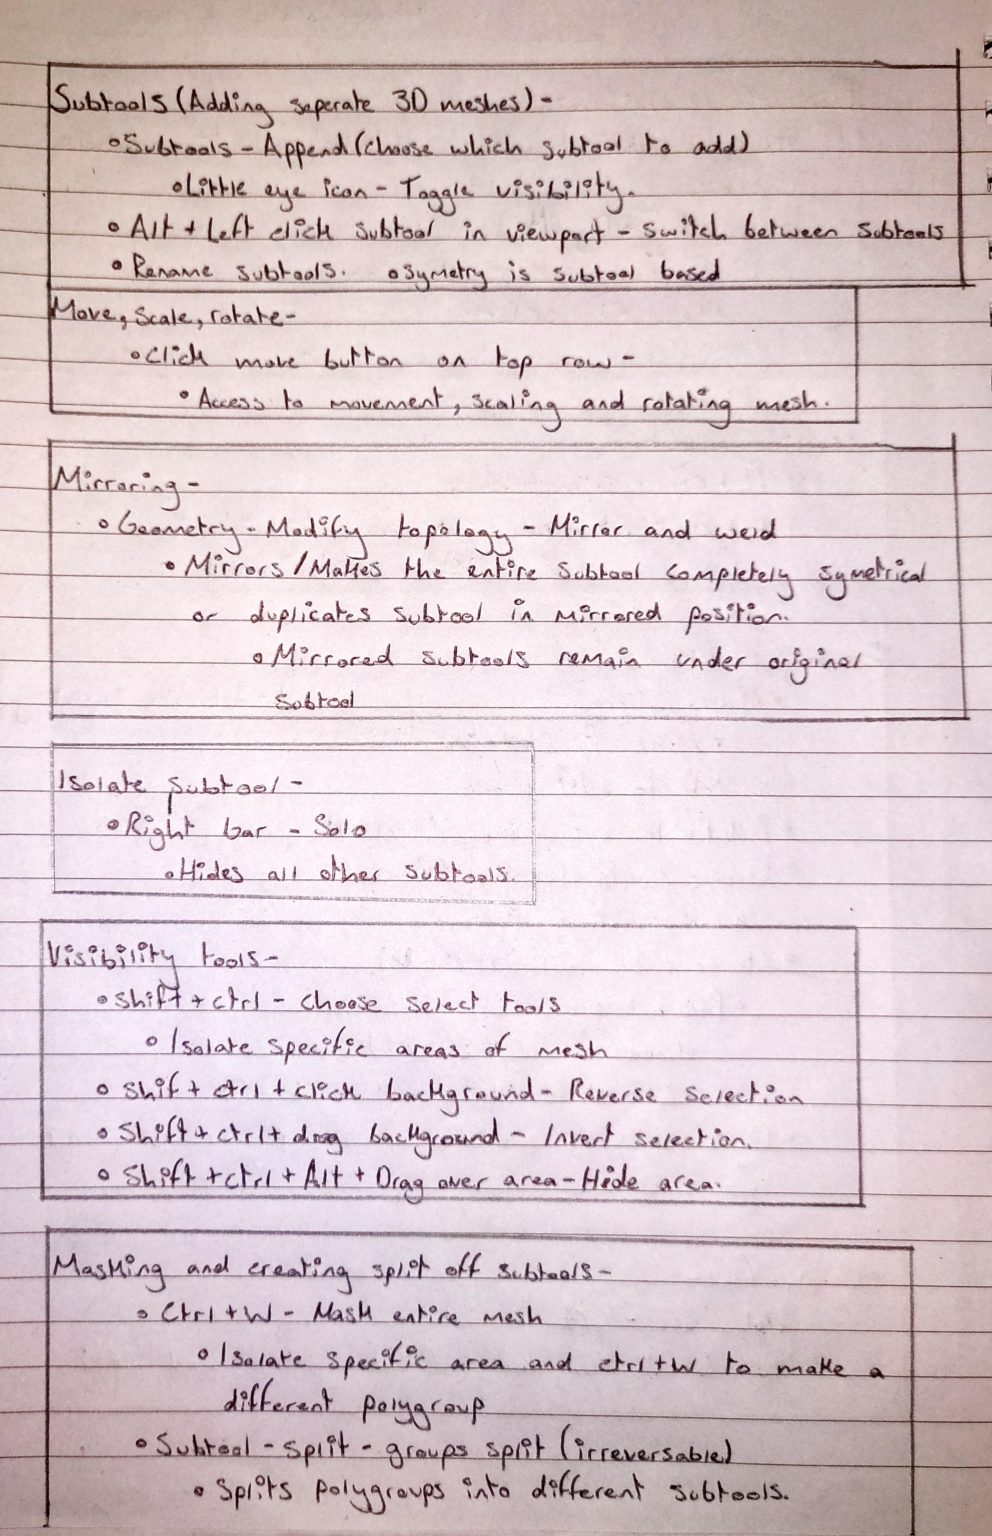 Subtools (Adding seperate 3D meshes) -
Subtools - Append (choose which subtool to add)
Little eye icon - Toggle visibility.
Alt + Left click subtool in viewport - switch between subtools
Rename subtools. symetry is subtool based
Move, scale, rotate-
Click move button on top row -
Access to movement, scaling and rotating mesh.
Mirroring -
Geometry - Modify topology - Mirror and weld
Mirrors / Makes the entire subtool completely symetrical
or duplicates subtool in mirrored position.
Mirrored subtools remain under original
subtool
Isolate subtool -
Right bar - Solo
Hides all other subtools.
Visibility tools -
Shift + ctrl - choose select tools
Isolate specific areas of mesh
Shif + ctrl + click background - Reverse selection
Shift + ctrl + drag background - Invert selection.
Shift + ctrl + Alt + Drag over area - Hide area.
Masking and creating split off subtools -
Ctrl + W - Mask entire mesh
Isolate specific area and ctrl + W to make a
different polygroup
Subtool - split - groups split (irreversable)
Splits polygroups into different subtools.